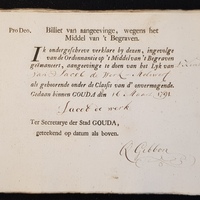 Pro Deo, Billiet van aangeevinge, wegens het
Middel van 't Begraven.
Ik ondergeschreve verklare by dezen, ingevolge
van de Ordonnantie op 't Middel van 't Begraven
geëmaneert, aangevinge te doen van het Lyk van
Jacob de Werk
als gehoorende onder de Classis van d' onvermogende.
Gedaan binnen GOUDA den 16 1791
Jacob de werk
Ter Secretarye der Stad GOUDA,
geteekend op datum als boven.